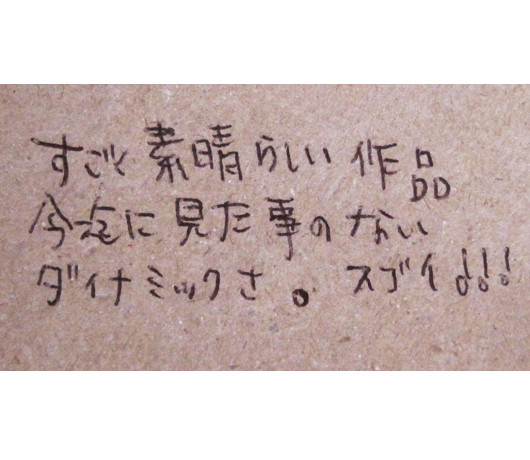 すごく素晴らしい作品
今迄に見た事のない
ダイナミックさ。スゴイ!!!